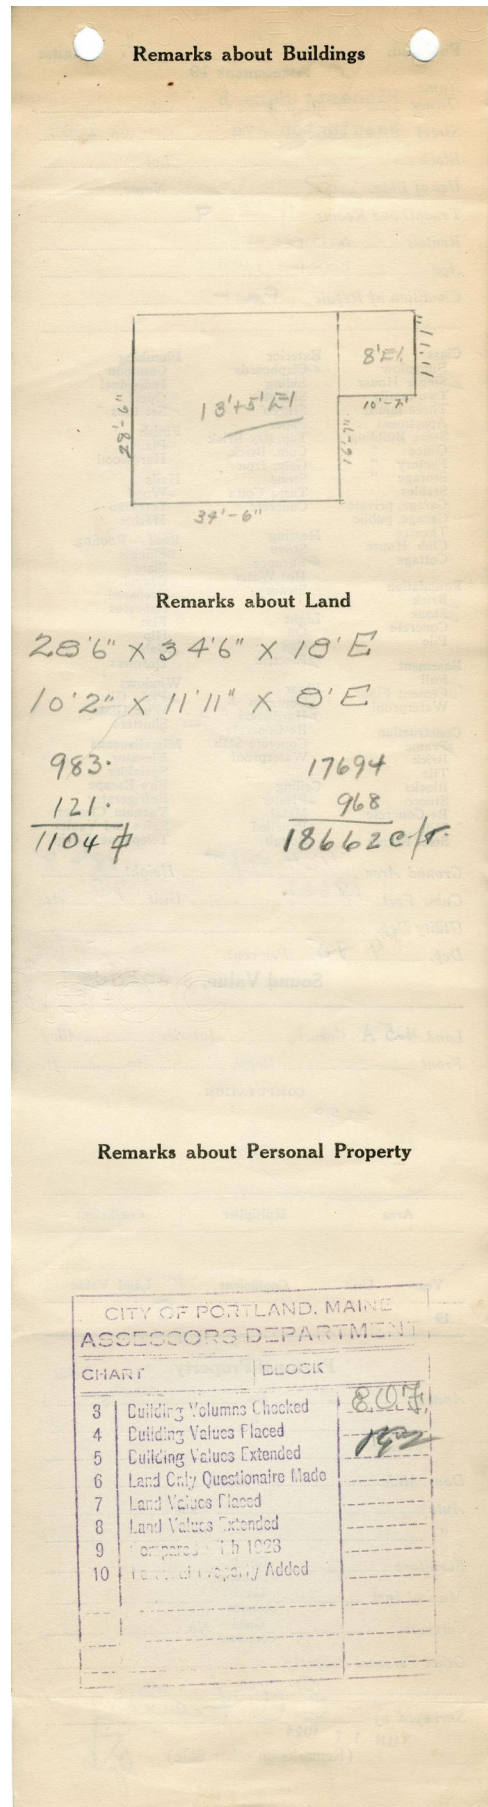 Remarks about Buildings
8'El.
11'-11"
13'+5' El
10'-2"
28'-6"
16'-7"
34'-6"
Remarks about Land
28'6" X 34'6" X 18'E
10'2" X 11'11" X 8'E
983. 17694
121. 968
1104 ⌀ 18662 c/f.
Remarks about Personal Property
CITY OF PORTLAND, MAINE
ASSESSORS DEPARTMENT
CHART BLOCK
3 Building Volumns Checked E.O.F.
4 Building Values Placed
5 Building Values Extended
6 Land Only Questionaire Made
7 Land Values Placed
8 Land Values Extended
9 Compared With 1923
10 Personal Property Added